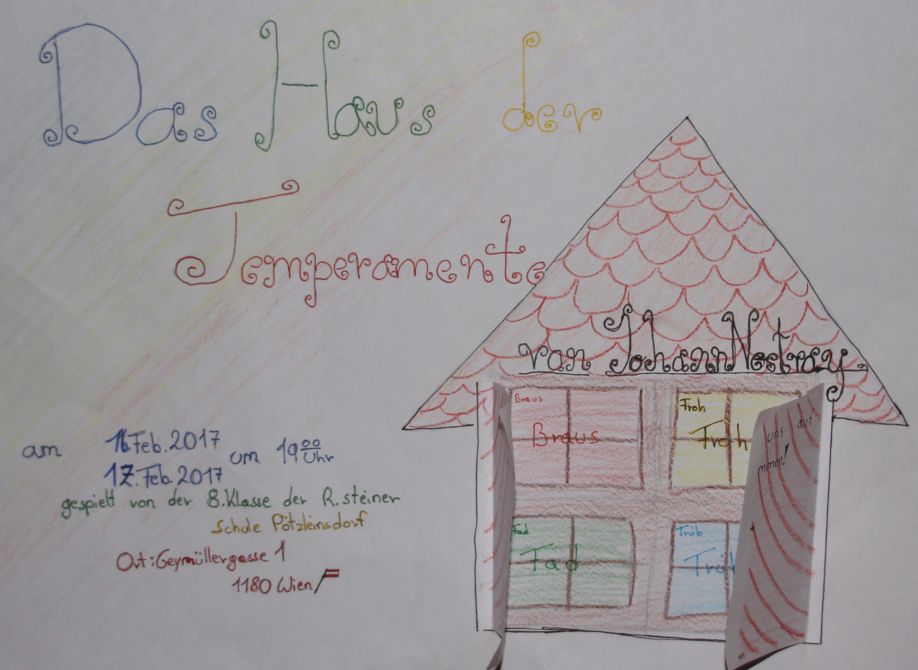 Das Haus der
Temperamente
von Johann Nestroy
Braus
Braus
Froh
Froh
uns auf
mmen!
Fad
Fad
Trüb
am 16.Feb.2017
17.Feb.2017
um 19⁰⁰ Uhr
gespielt von der 8.Klasse der R.steiner
Schule Pötzleinsdorf
Ort:Geymüllergasse 1
1180 Wien